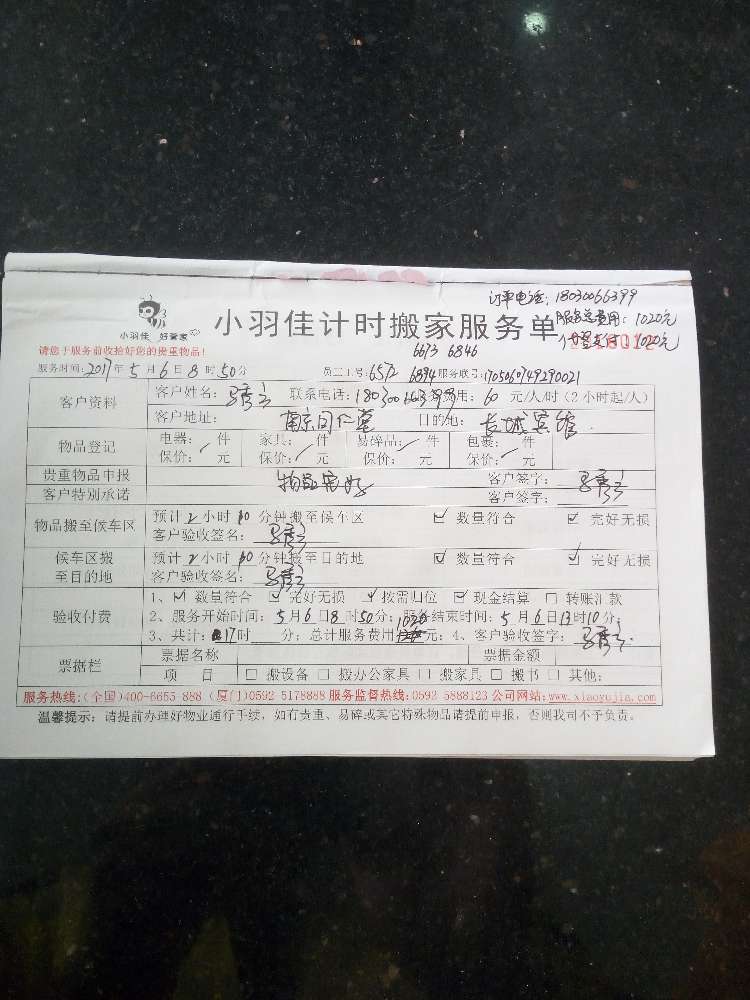 订单电话：18030066399
服务总费用：1020元
1020元
小羽佳 好管家
小羽佳计时搬家服务单
请您于服务前收拾好您的贵重物品！
6673 6846
服务时间：2017年5月6日8时50分 员工工号：6572 6894 服务联号：
客户资料 客户姓名： 联系电话： 费用：60元/人/时（2小时起/人）
客户地址：南京同仁堂 目的地：长城宾馆
物品登记 电器： 件 家具： 件 易碎品： 件 包裹： 件
保价： 元 保价： 元 保价： 元 保价： 元
贵重物品申报 物品完好 客户签字：
客户特别承诺 客户签字：
物品搬至候车区 预计2小时10分钟搬至候车区 ☑ 数量符合 ☑ 完好无损
客户验收签名：
候车区搬至目的地 预计2小时10分钟搬至目的地 ☑ 数量符合 ☑ 完好无损
客户验收签名：
验收付费 1、☑ 数量符合 ☑ 完好无损 ☑ 按需归位 ☑ 现金结算 □ 转账汇款
2、服务开始时间：5月6日8时50分；服务结束时间：5月6日13时10分；
3、共计：17时 分；总计服务费用1020元；4、客户验收签字：
票据栏 票据名称 票据金额
项 目 □ 搬设备 □ 搬办公家具 □ 搬家具 □ 搬书 □ 其他：
服务热线：（全国）400-6655 888（厦门）0592 5178888 服务监督热线：0592 5888123 公司网站：www.xiaoyujia.com
温馨提示：请提前办理好物业通行手续，如有贵重、易碎或其它特殊物品请提前申报，否则我司不予负责。